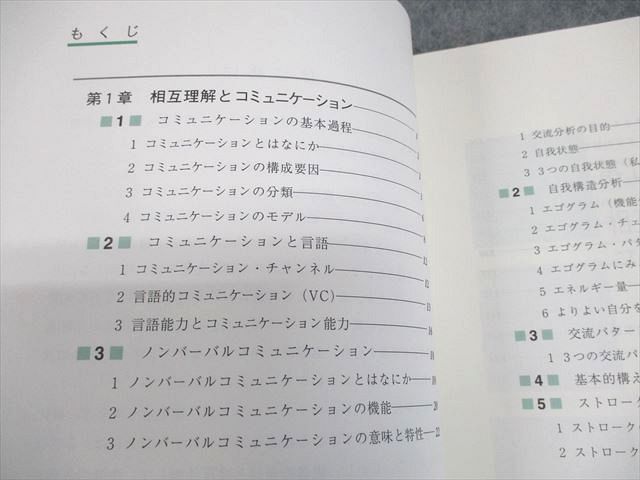 もくじ
第1章 相互理解とコミュニケーション
1 コミュニケーションの基本過程
1 コミュニケーションとはなにか
2 コミュニケーションの構成要因
3 コミュニケーションの分類
4 コミュニケーションのモデル
2 コミュニケーションと言語 12
1 コミュニケーション・チャンネル 12
2 言語的コミュニケーション（VC） 13
3 言語能力とコミュニケーション能力 16
3 ノンバーバルコミュニケーション 18
1 ノンバーバルコミュニケーションとはなにか 19
2 ノンバーバルコミュニケーションの機能 20
3 ノンバーバルコミュニケーションの意味と特性 22
1 交流分析の目的
2 自我状態
3 3つの自我状態（私
2 自我構造分析
1 エゴグラム（機能
2 エゴグラム・チェ
3 エゴグラム・パタ
4 エゴグラムにみ
5 エネルギー量
6 よりよい自分を
3 交流パター
1 3つの交流パ
4 基本的構え
5 ストローク
1 ストロークの
2 ストローク